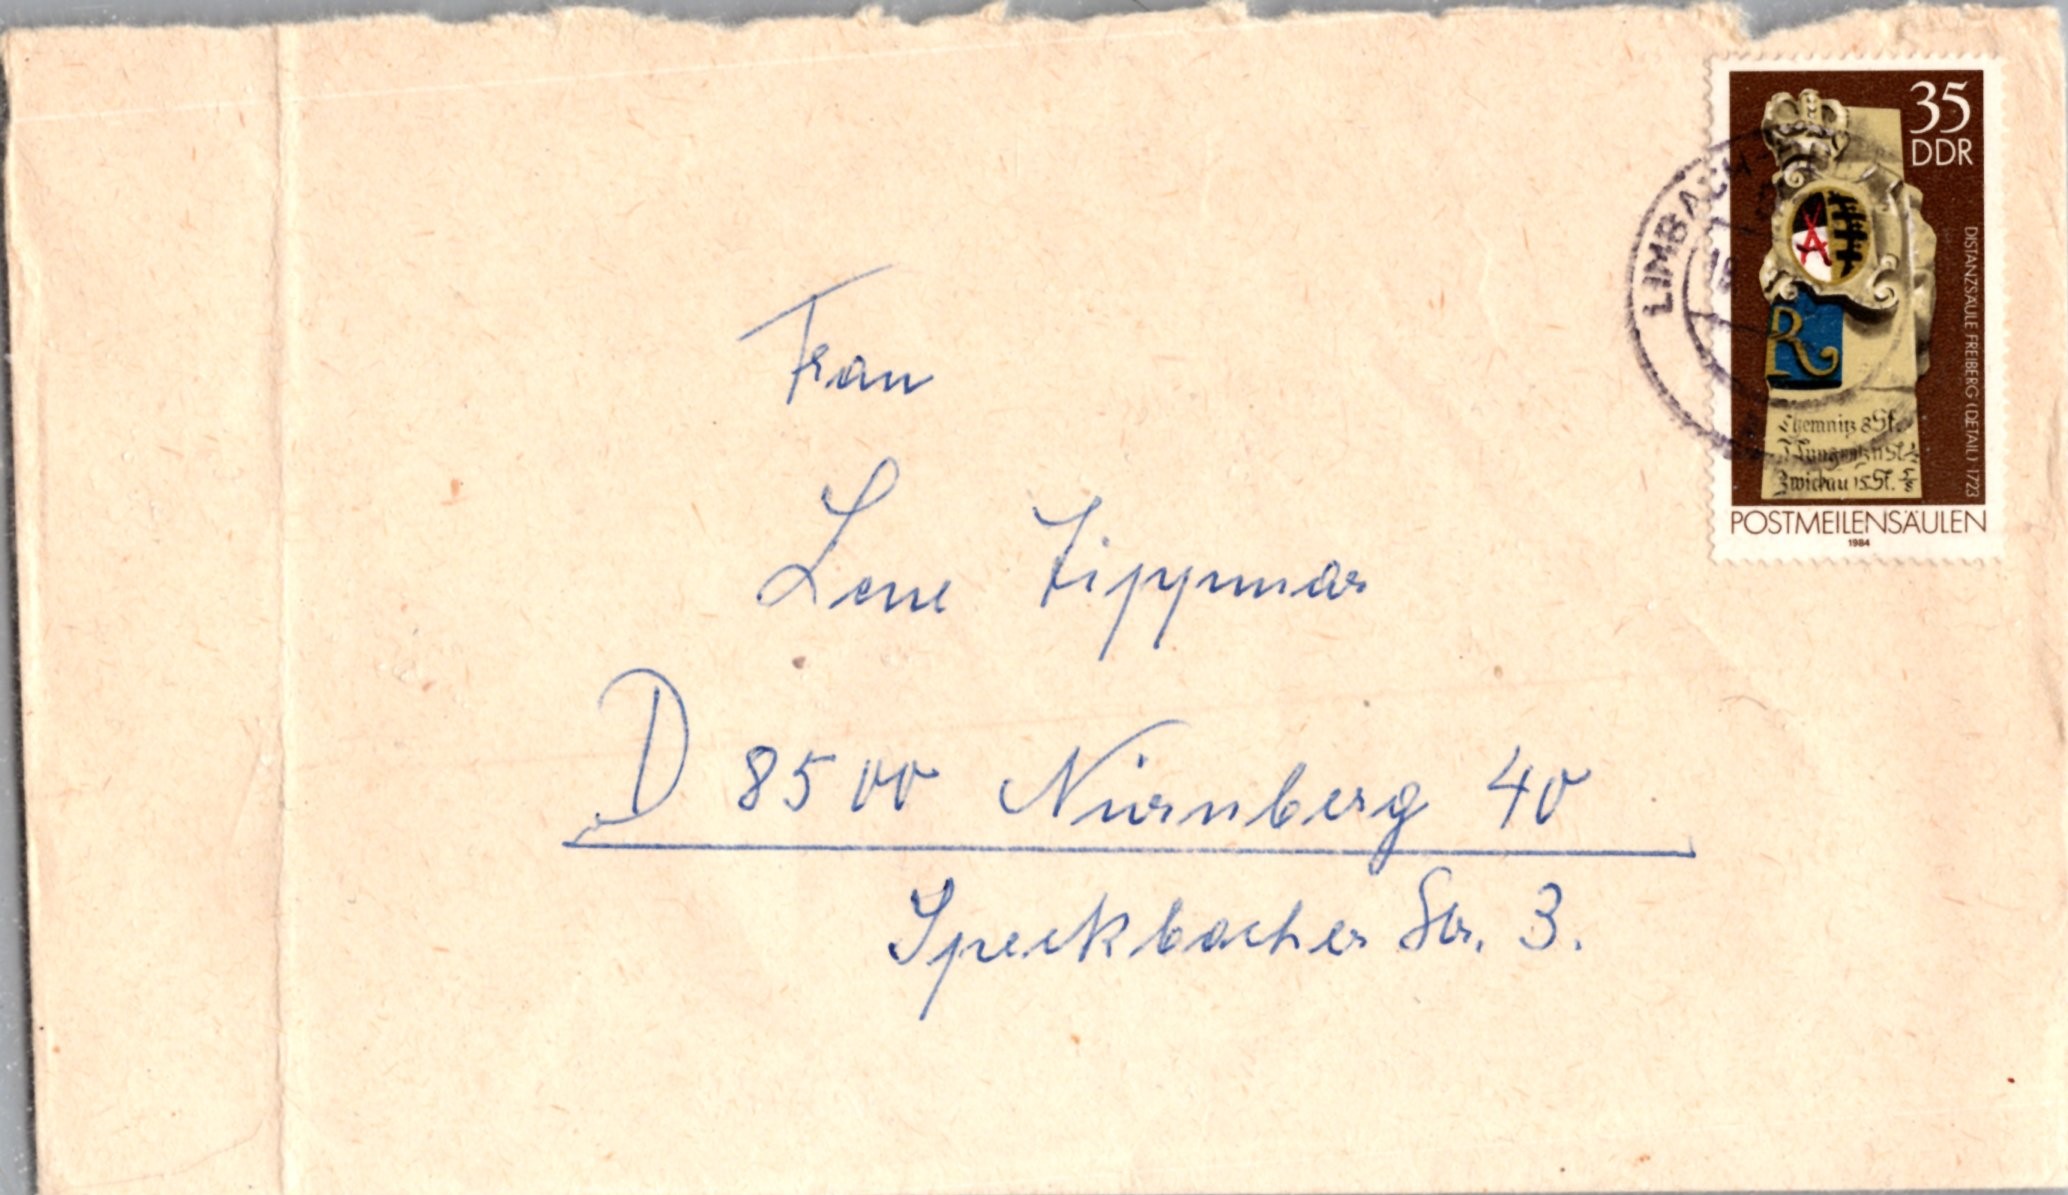 35
DDR
DISTANZSÄULE FREIBERG (DETAIL) 1723
LIMBACH-
R
Chemnitz 8 St.
Zwickau 15 St.
POSTMEILENSÄULEN
1984
Frau
Lene
D 8500 Nürnberg 40
Speckbacher Str. 3.